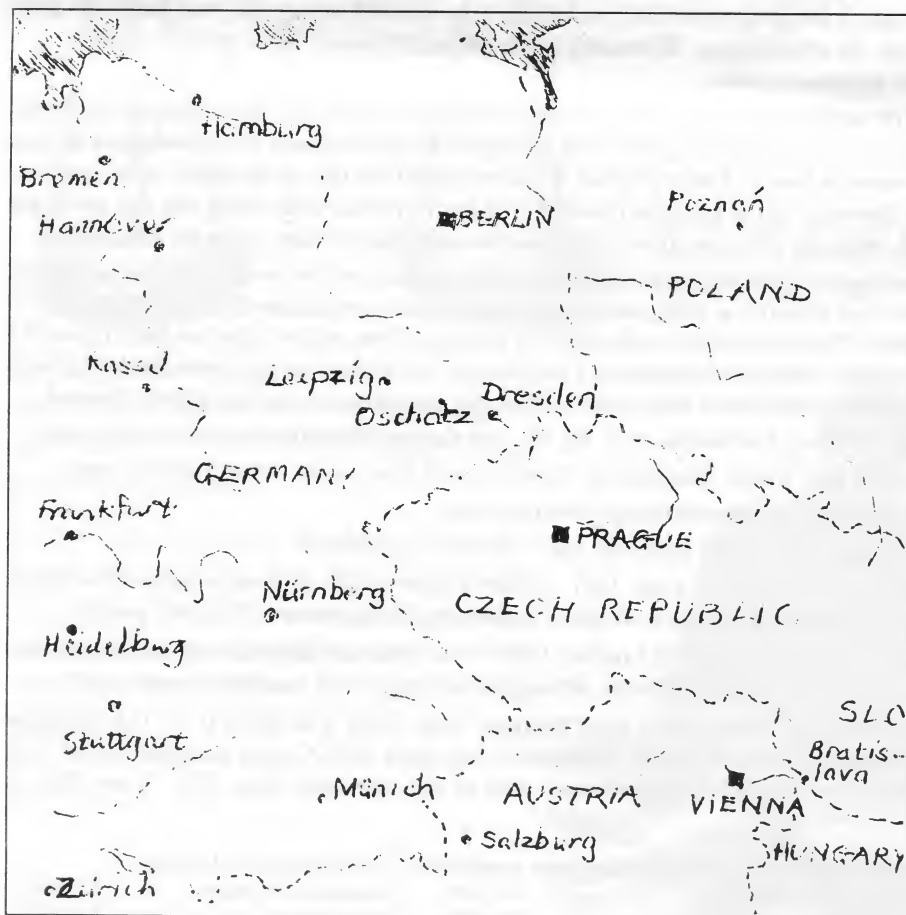 Hamburg
Bremen
Hannover
BERLIN
Poznań
POLAND
Kassel
Leipzig
Dresden
Oschatz
GERMANY
Frankfurt
PRAGUE
Nürnberg
CZECH REPUBLIC
Heidelburg
SLO
Stuttgart
Bratis-
lava
Münich
AUSTRIA
VIENNA
Salzburg
HUNGARY
Zürich